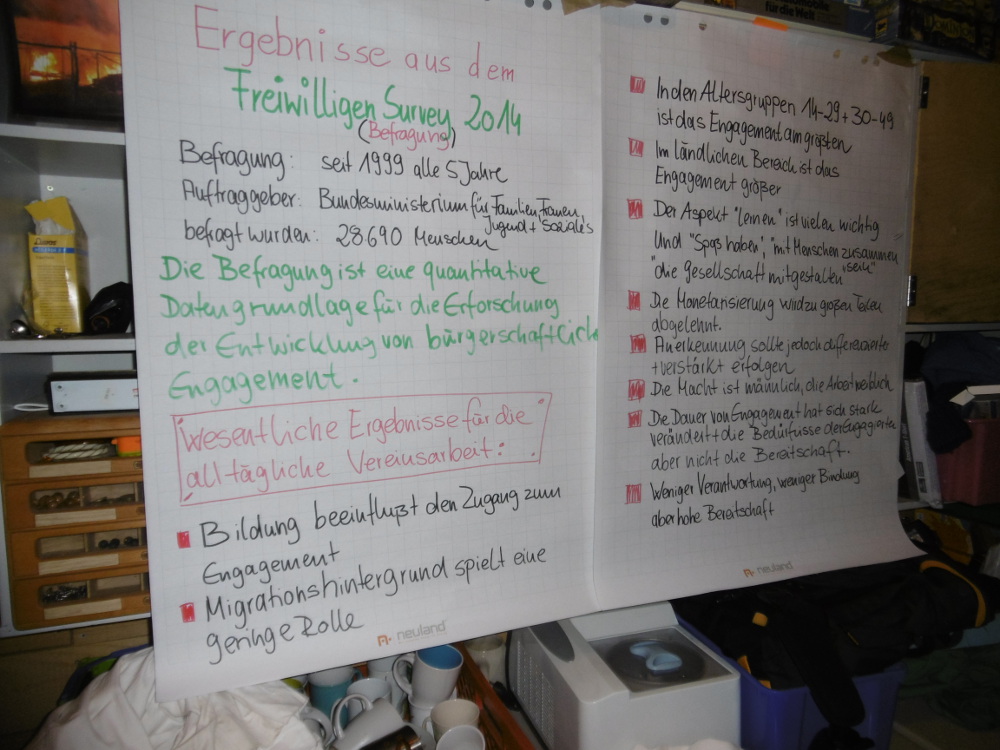 Ergebnisse aus dem
Freiwilligen Survey 2014
(Befragung)
Befragung: seit 1999 alle 5 Jahre
Auftraggeber: Bundesministerium für Familien, Frauen,
Jugend + Soziales
befragt wurden: 28.690 Menschen
Die Befragung ist eine quantitative
Datengrundlage für die Erforschung
der Entwicklung von bürgerschaftlich
Engagement.
Wesentliche Ergebnisse für die
alltägliche Vereinsarbeit:
Bildung beeinflußt den Zugang zum
Engagement
Migrationshintergrund spielt eine
geringe Rolle
neuland
In den Altersgruppen 14-29 + 30-49
ist das Engagement am größten
Im ländlichen Bereich ist das
Engagement größer
Der Aspekt "lernen" ist vielen wichtig
Und "Spaß haben", "mit Menschen zusammen
sein"
"die Gesellschaft mitgestalten"
Die Monetarisierung wird zu großen Teilen
abgelehnt.
Anerkennung sollte jedoch differenzierter
+ verstärkt erfolgen
Die Macht ist männlich, die Arbeit weiblich
Die Dauer von Engagement hat sich stark
verändert + die Bedürfnisse der Engagierten
aber nicht die Bereitschaft.
Weniger Verantwortung, weniger Bindung
aber hohe Bereitschaft
neuland
für die Welt